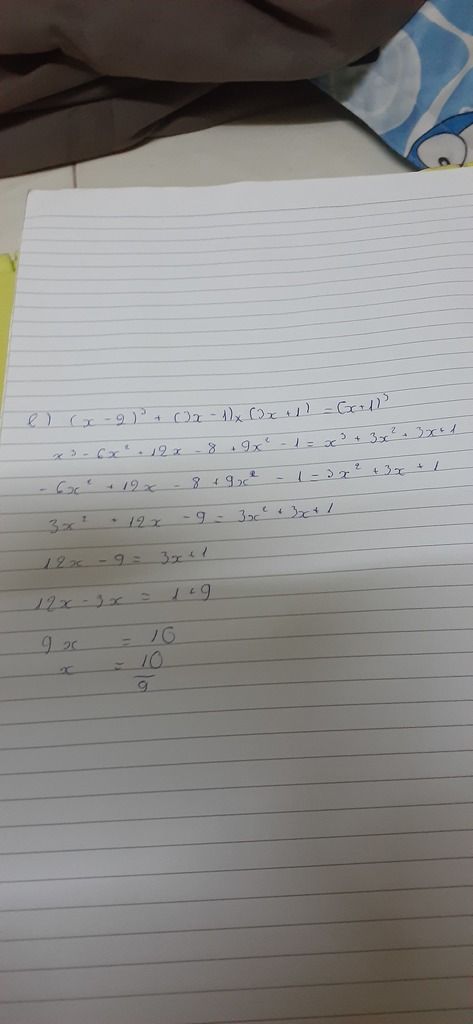 e) (x - 2)³ + (3x - 1) x (3x + 1) = (x + 1)³
x³ - 6x² + 12x - 8 + 9x² - 1 = x³ + 3x² + 3x + 1
- 6x² + 12x - 8 + 9x² - 1 = 3x² + 3x + 1
3x² + 12x - 9 = 3x² + 3x + 1
12x - 9 = 3x + 1
12x - 3x = 1 + 9
9x = 10
x = 10/9